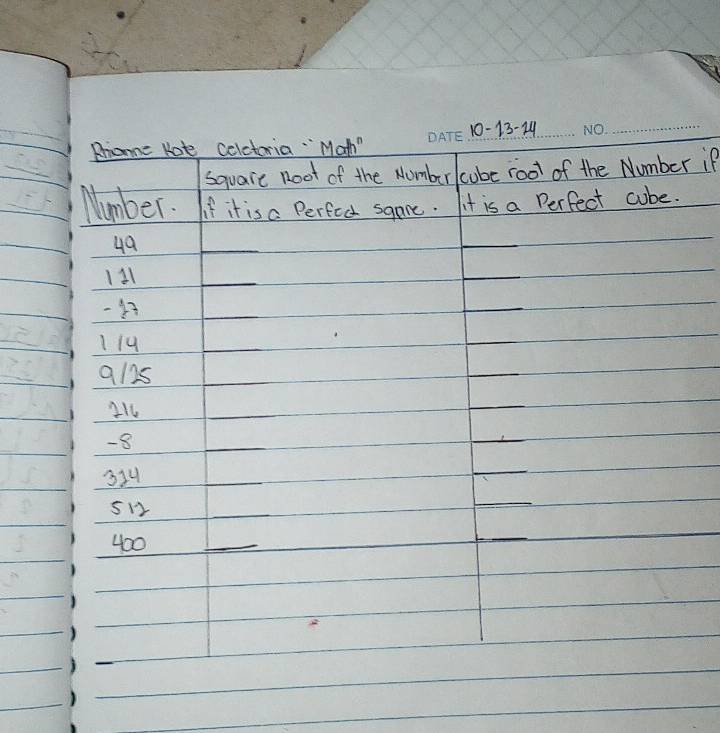 DATE 10-13-24 NO.
Brianne Kate Celetaria "Math"
Square Root of the Number cube root of the Number if
Number. if it is a Perfect sqare. it is a Perfect cube.
49
121
-27
1/4
9/25
216
-8
324
512
400